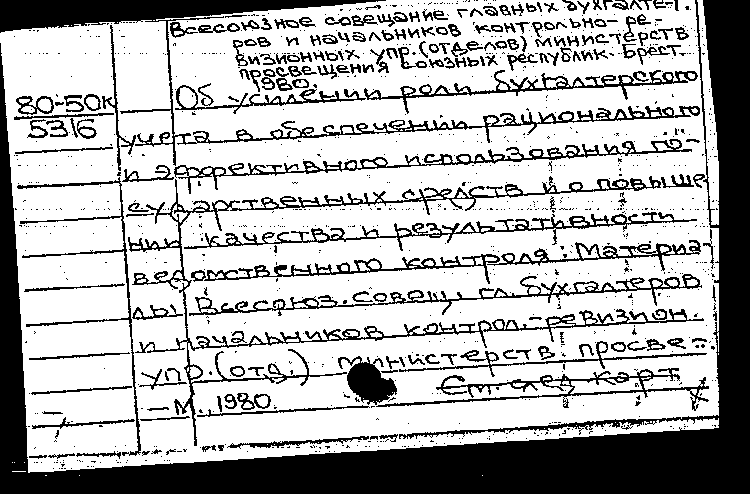 Всесоюзное совещание главных бухгалте-
ров и начальников контрольно-ре-
визионных упр.(отделов) министерств
просвещения союзных республик. Брест.
1980.
80-50к
5316
Об усилении роли бухгалтерского
учета в обеспечении рационального
и эффективного использования го-
сударственных средств и о повыше
нии качества и результативности
ведомственного контроля: Материа-
лы Всесоюз. совещ. гл. бухгалтеров
и начальников контрол.-ревизион.
упр.(отд.) министерств. просве-
-М., 1980.
См. след. карт